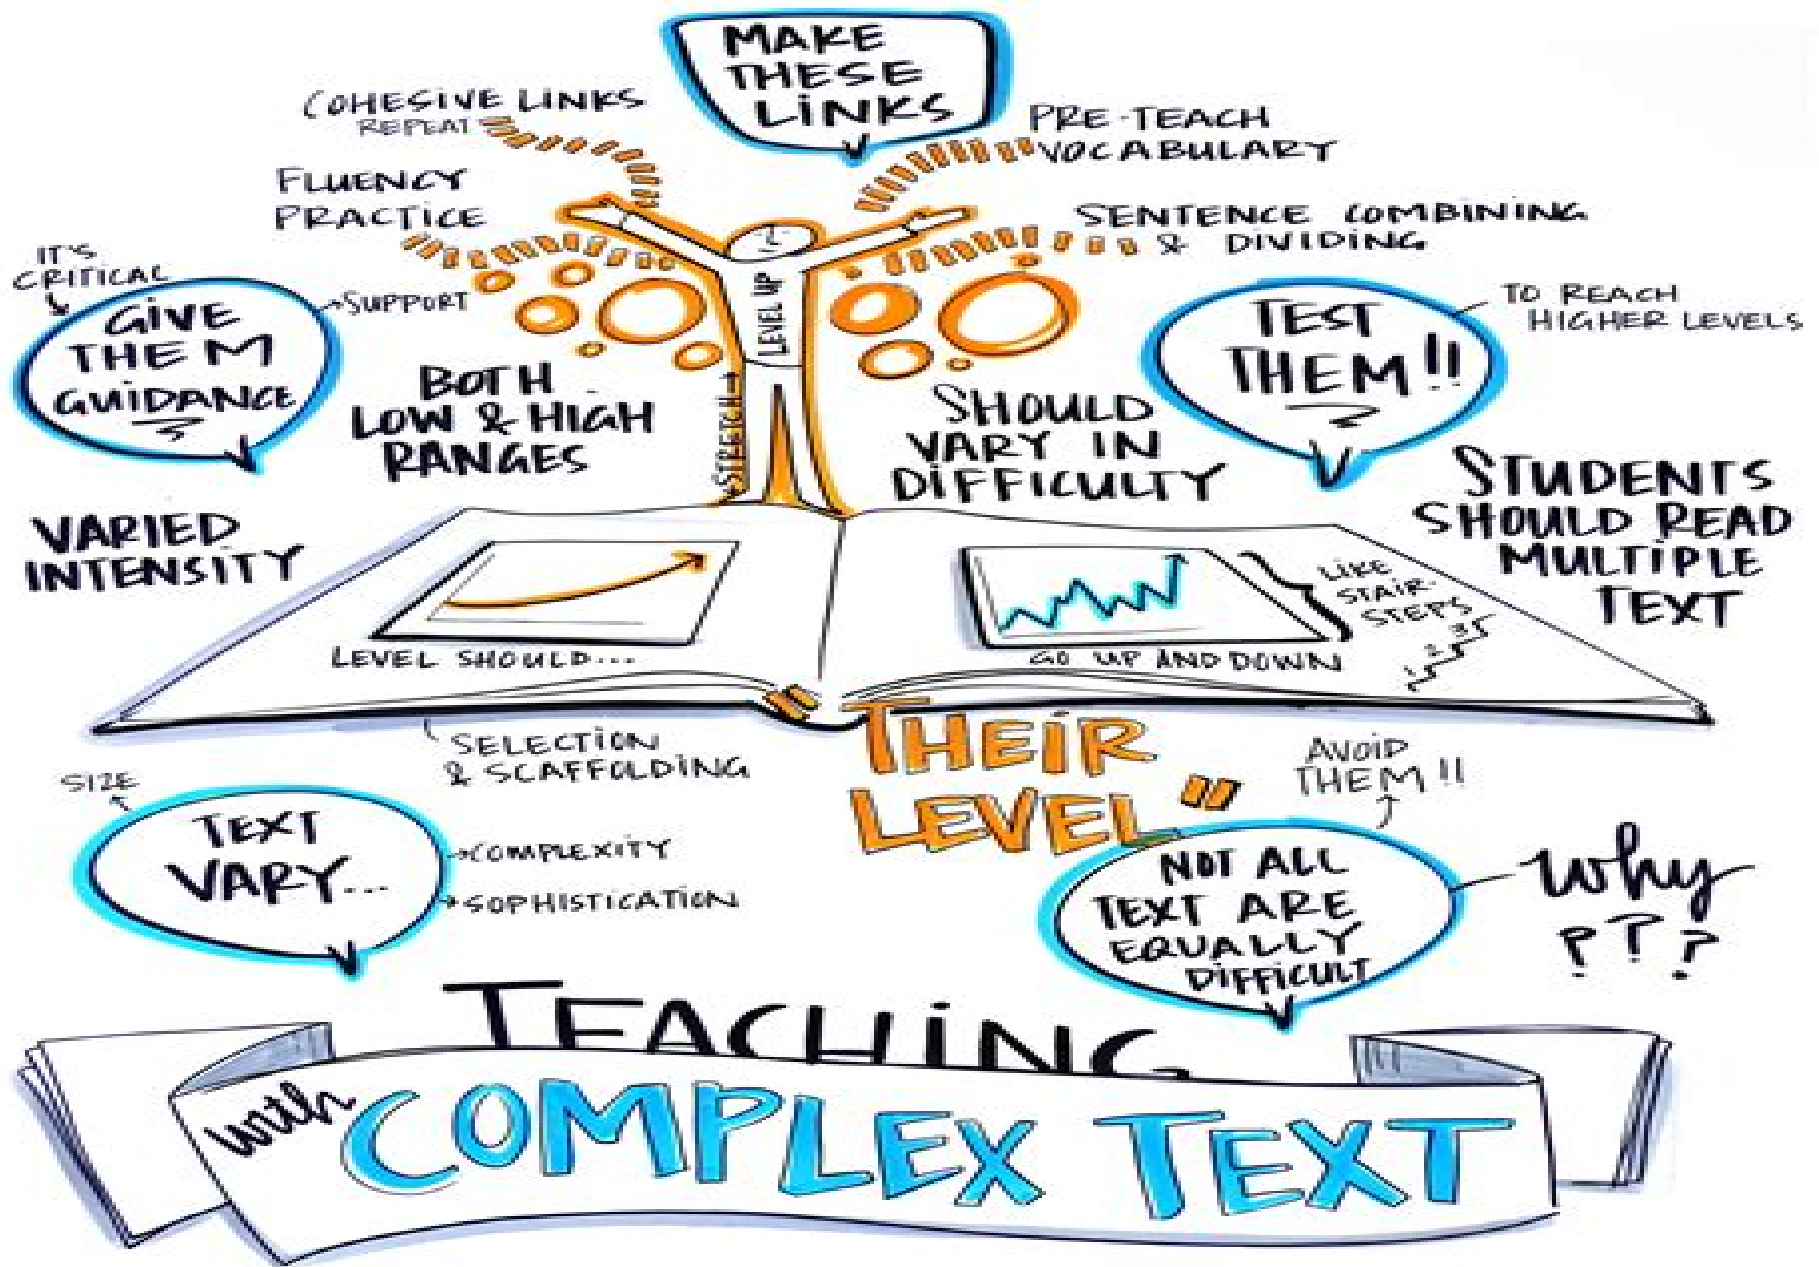 MAKE
THESE
LINKS
COHESIVE LINKS
REPEAT
PRE-TEACH
VOCABULARY
FLUENCY
PRACTICE
SENTENCE COMBINING
& DIVIDING
IT'S
CRITICAL
GIVE
THEM
GUIDANCE
SUPPORT
LEVEL UP
STRETCH
TEST
THEM!!
TO REACH
HIGHER LEVELS
BOTH
LOW & HIGH
RANGES
SHOULD
VARY IN
DIFFICULTY
VARIED
INTENSITY
STUDENTS
SHOULD READ
MULTIPLE
TEXT
LEVEL SHOULD...
GO UP AND DOWN
LIKE
STAIR-
STEPS
1 2 3
SELECTION
& SCAFFOLDING
"THEIR
LEVEL"
AVOID
THEM!!
SIZE
TEXT
VARY...
COMPLEXITY
SOPHISTICATION
NOT ALL
TEXT ARE
EQUALLY
DIFFICULT
Why
???
TEACHING
with COMPLEX TEXT